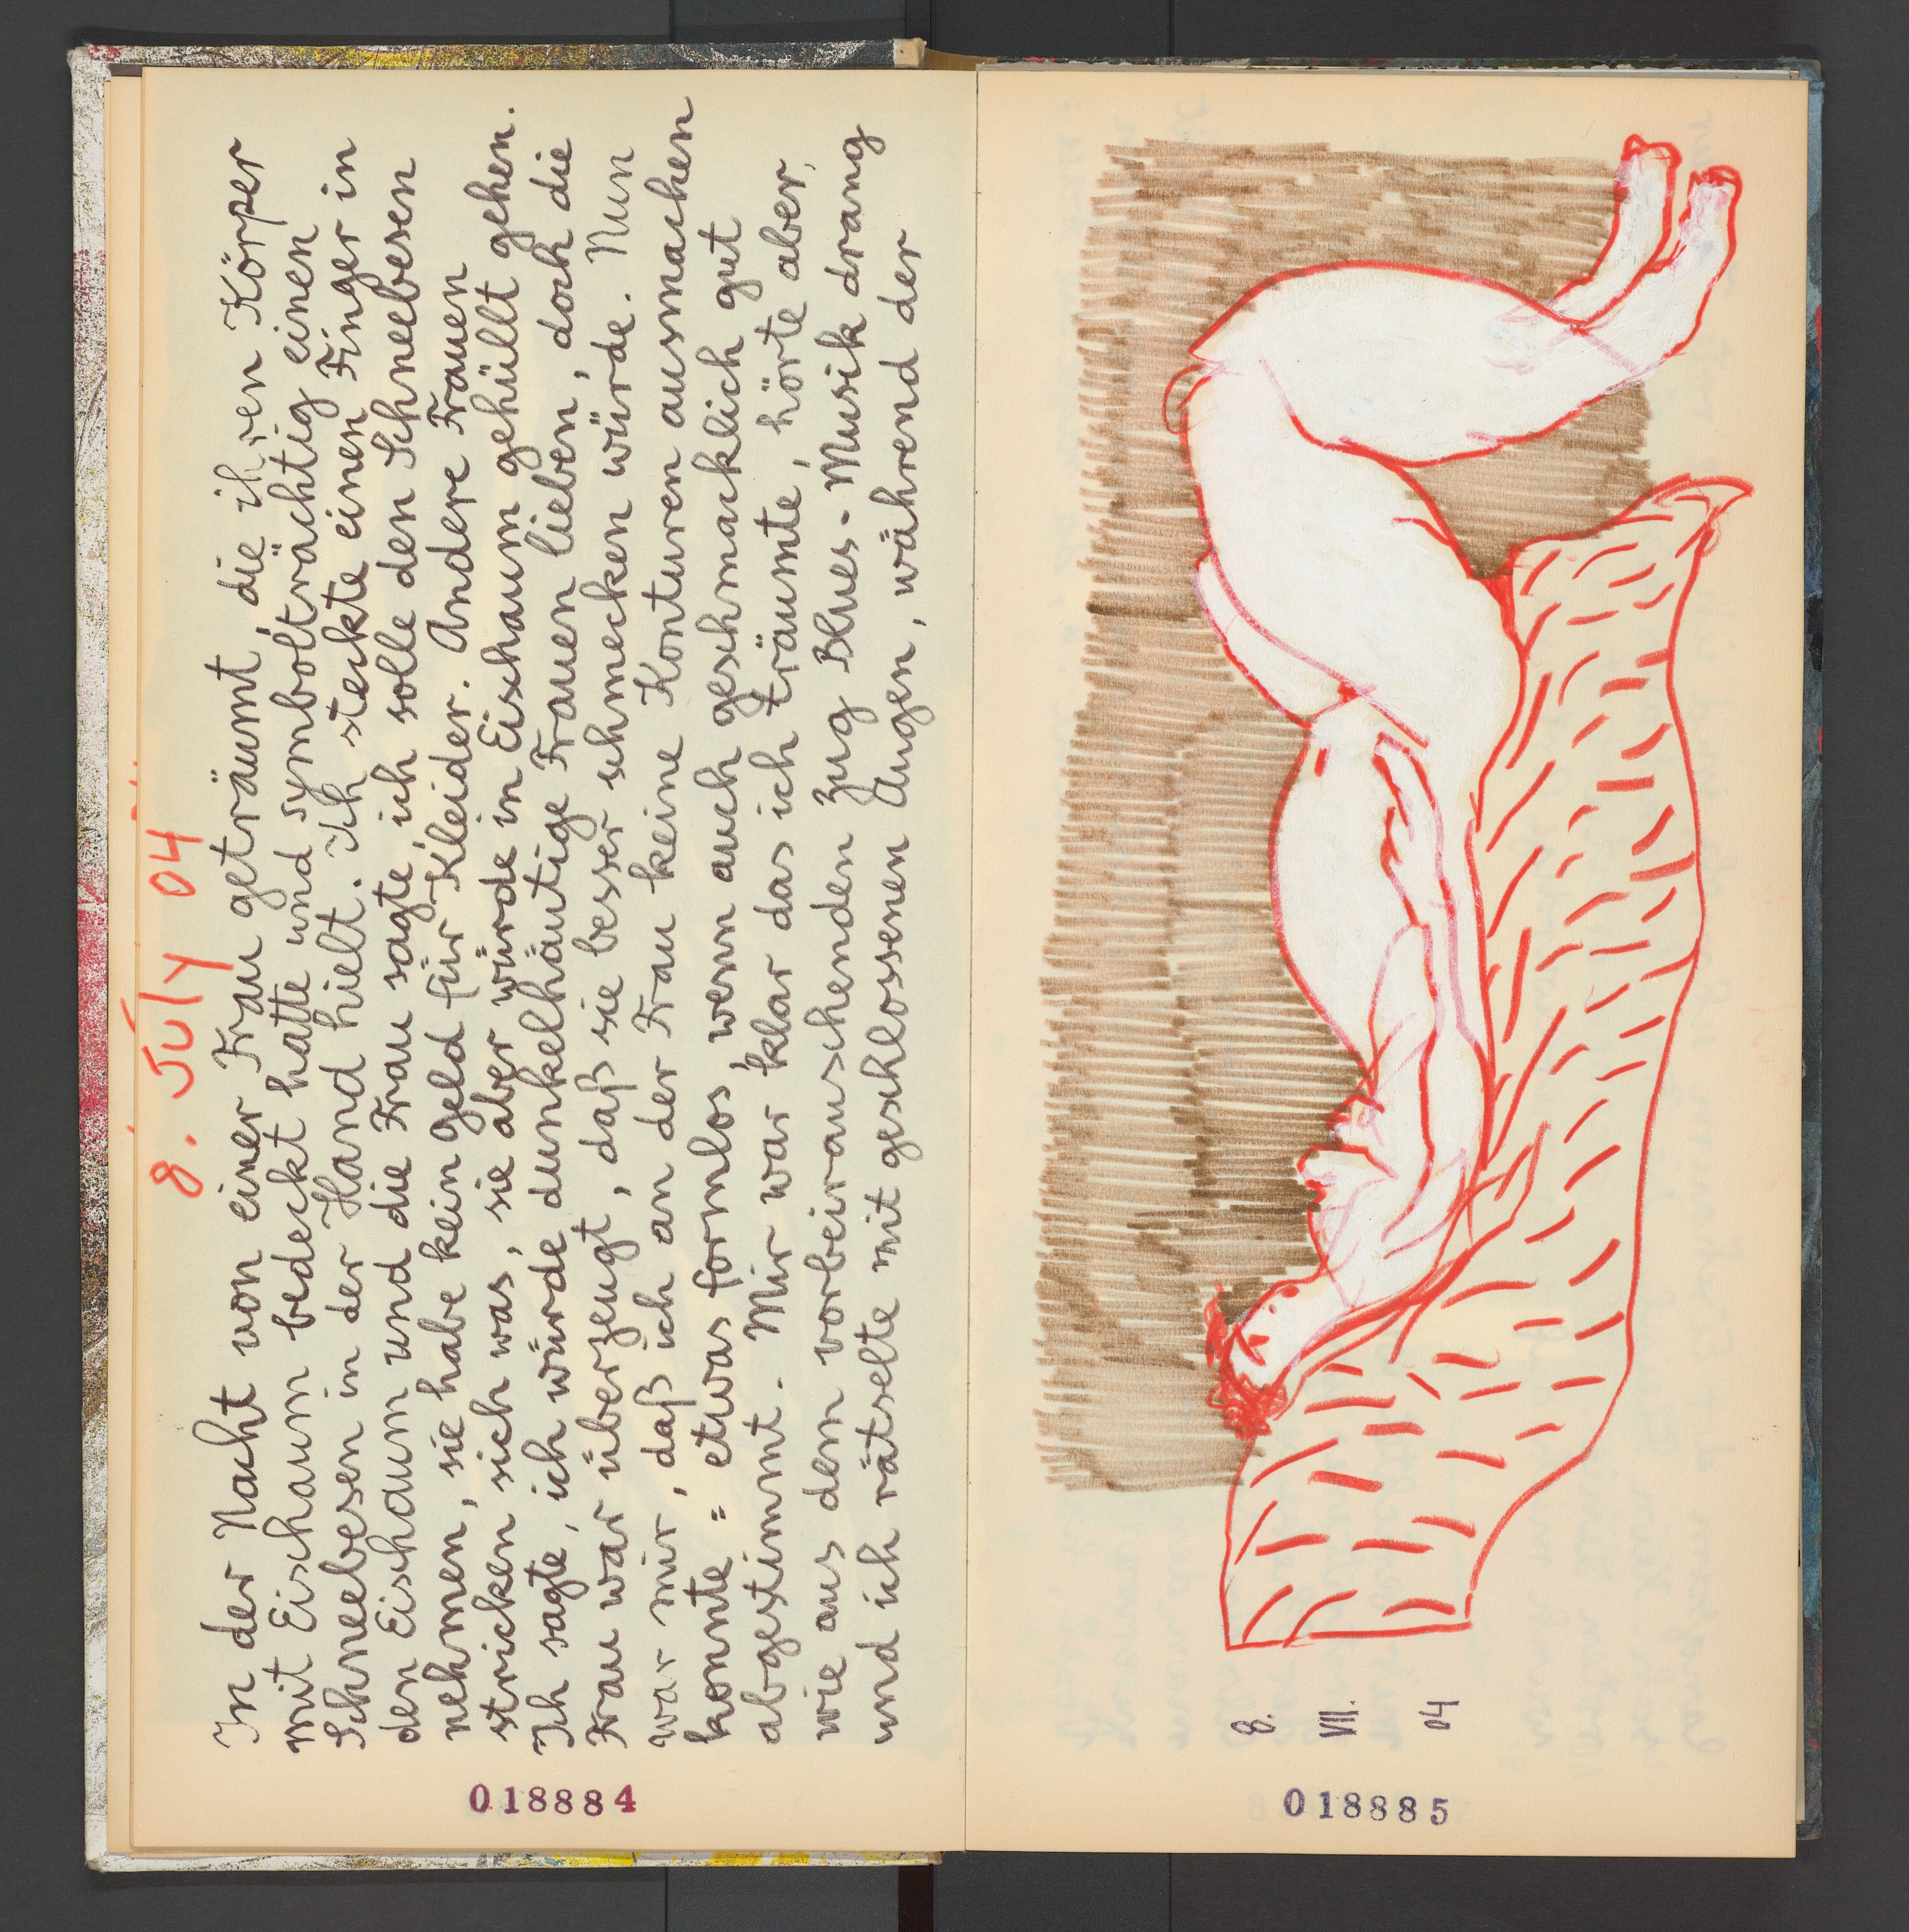 8. JULY 04
In der Nacht von einer Frau geträumt, die ihren Körper
mit Eischaum bedeckt hatte und symbolträchtig einen
Schneebesen in der Hand hielt. Ich steckte einen Finger in
den Eischaum und die Frau sagte, ich solle den Schneebesen
nehmen, sie habe kein Geld für Kleider. Andere Frauen
stricken sich was, sie aber würde in Eischaum gehüllt gehen.
Ich sagte, ich würde dunkelhäutige Frauen lieben, doch die
Frau war überzeugt, daß sie besser schmecken würde. Nun
war mir, daß ich an der Frau keine Konturen ausmachen
konnte = etwas formlos, wenn auch geschmacklich gut
abgestimmt. Mir war klar das ich träumte, hörte aber,
wie aus dem vorbeirauschenden Zug Blues-Musik drang
und ich rätselte mit geschlossenen Augen, während der
018884
8.
VII.
04
018885